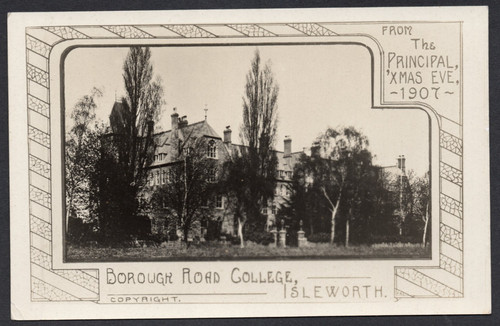 FROM
The
PRINCIPAL,
'XMAS EVE,
~1907~
BOROUGH ROAD COLLEGE,
ISLEWORTH.
COPYRIGHT.